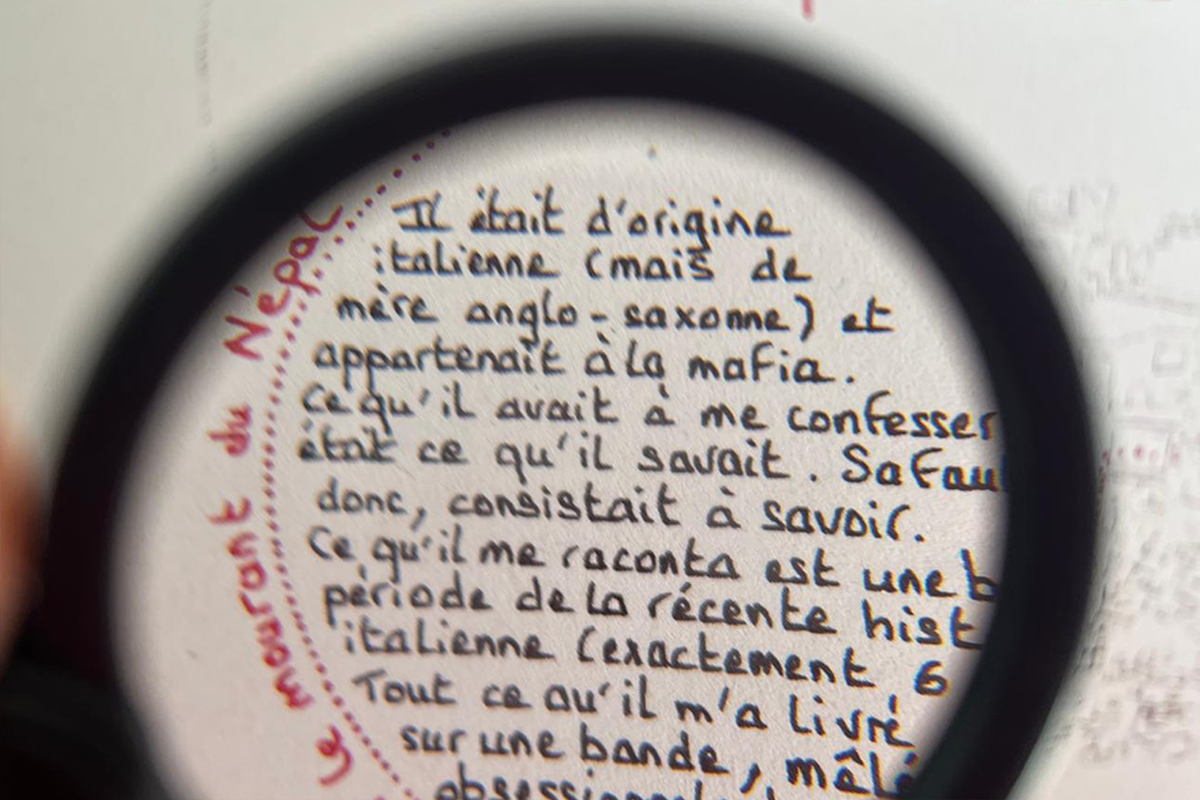 Le mourant du Népal
Il était d'origine
italienne (mais de
mère anglo-saxonne) et
appartenait à la mafia.
Ce qu'il avait à me confesser
était ce qu'il savait. Sa fau
donc, consistait à savoir.
Ce qu'il me raconta est une b
période de la récente hist
italienne (exactement 6
Tout ce qu'il m'a livré
sur une bande, mêlé